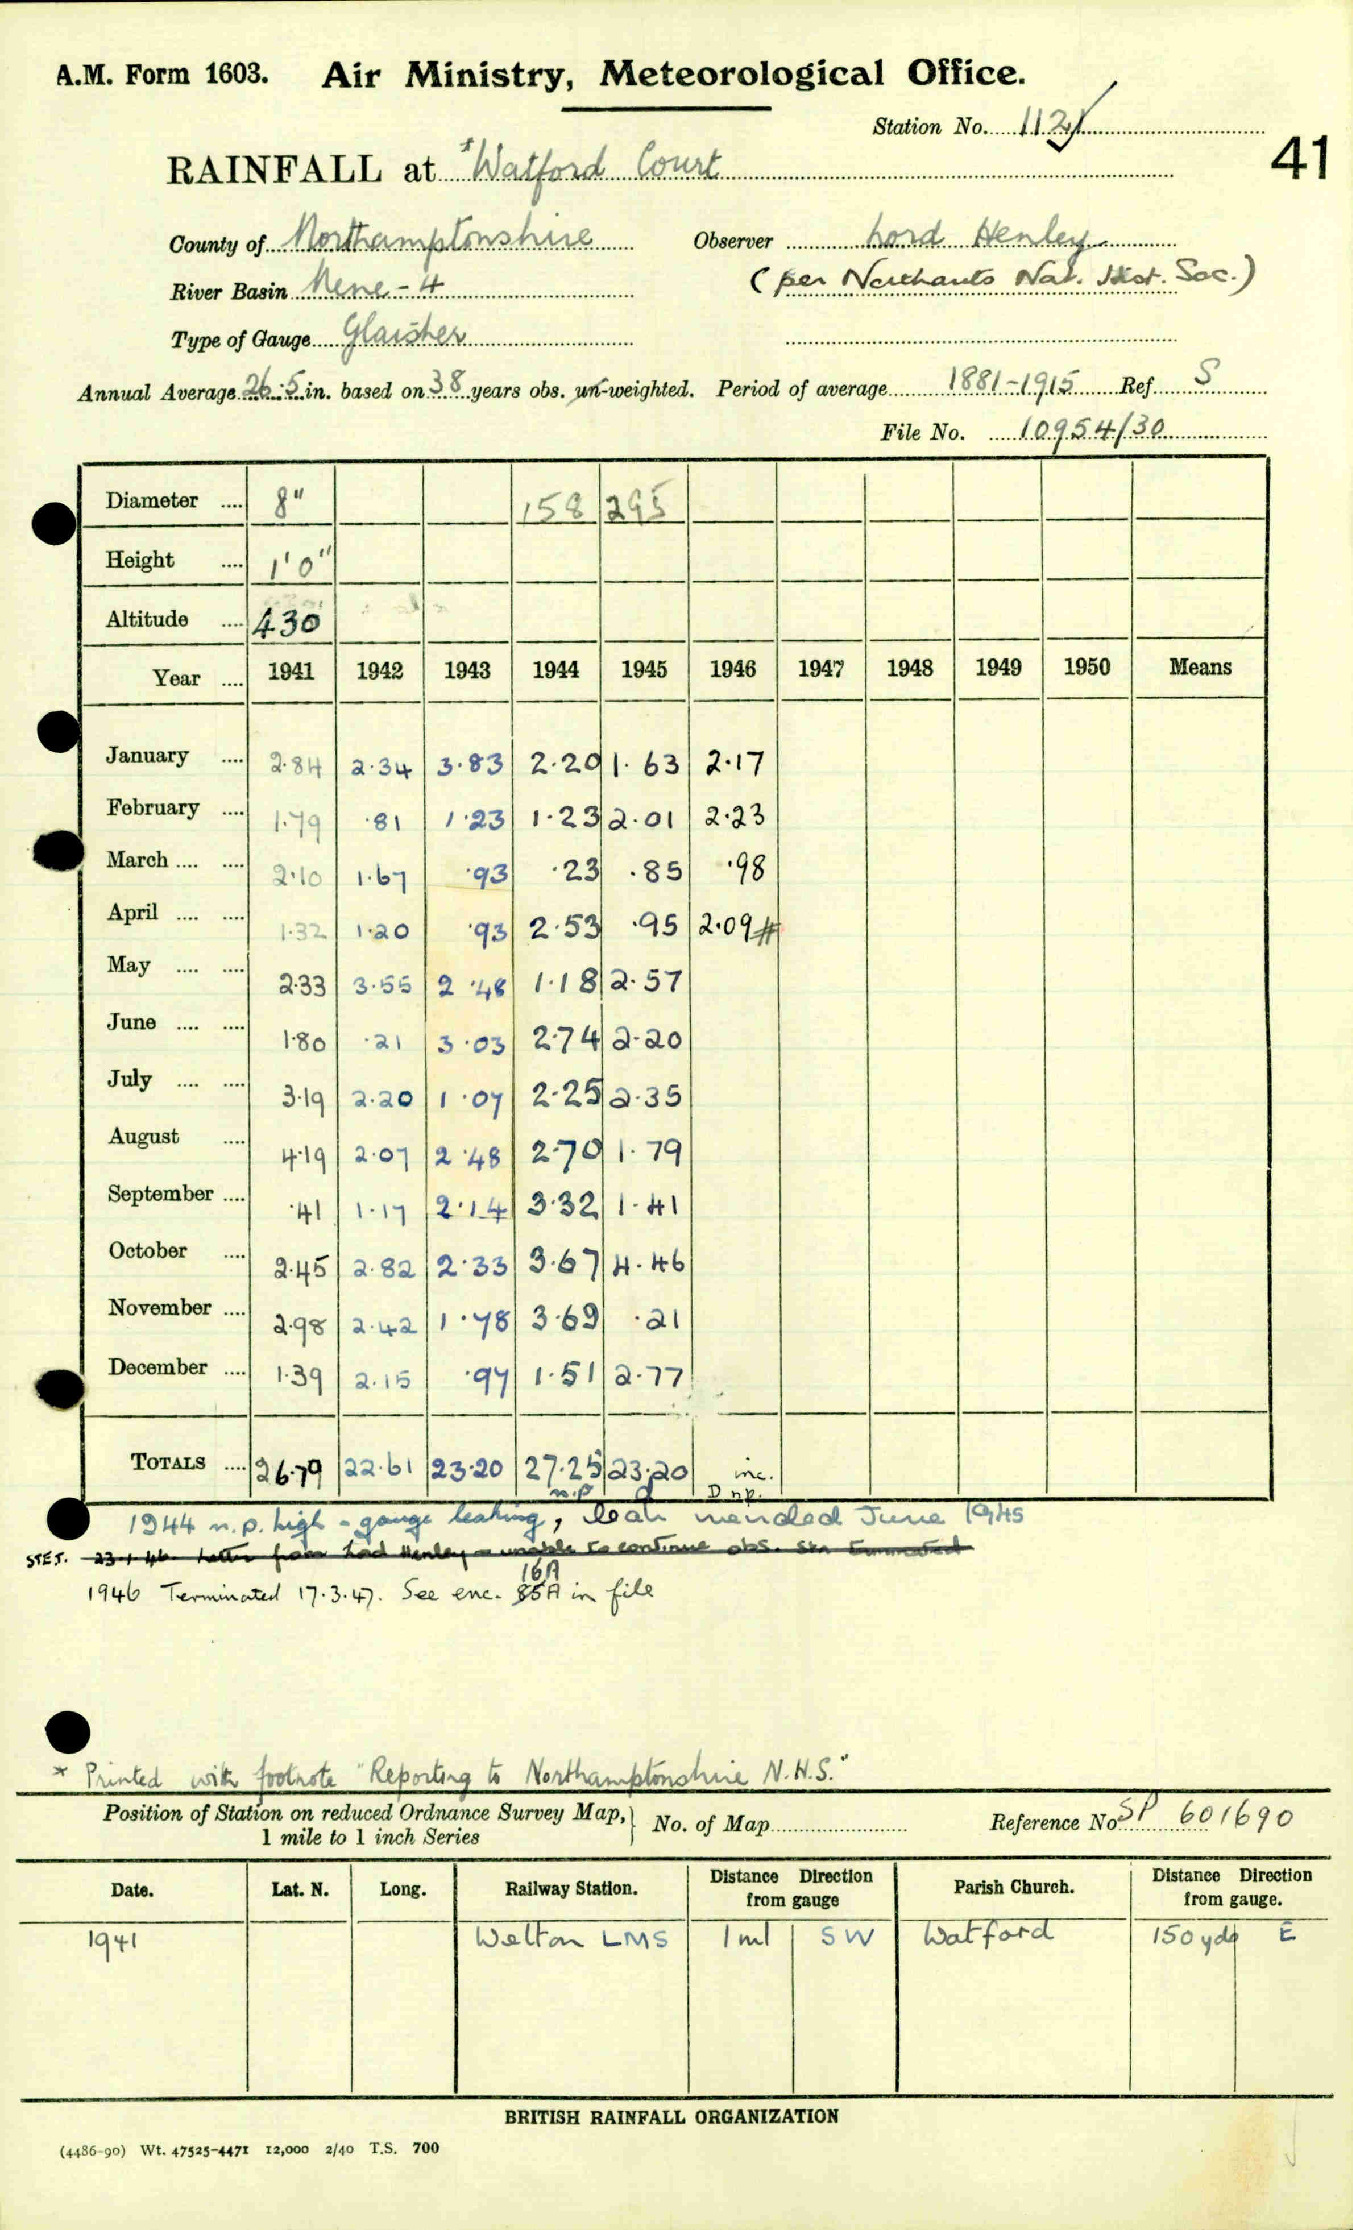 A.M. Form 1603. Air Ministry, Meteorological Office.
Station No. 1121
41
RAINFALL at *Watford Court
County of Northamptonshire Observer Lord Henley
River Basin Nene - 4 (per Northants Nat. Hist. Soc.)
Type of Gauge Glaisher
Annual Average 26.5 in. based on 38 years obs. un-weighted. Period of average 1881-1915 Ref. S
File No. 10954/30
Diameter .... 8" 158 295
Height .... 1'0"
Altitude .... 430
Year .... 1941 1942 1943 1944 1945 1946 1947 1948 1949 1950 Means
January .... 2.84 2.34 3.83 2.20 1.63 2.17
February .... 1.79 .81 1.23 1.23 2.01 2.23
March .... .... 2.10 1.67 .93 .23 .85 .98
April .... .... 1.32 1.20 .93 2.53 .95 2.09#
May .... .... 2.33 3.55 2.48 1.18 2.57
June .... .... 1.80 .21 3.03 2.74 2.20
July .... .... 3.19 2.20 1.07 2.25 2.35
August .... 4.19 2.07 2.48 2.70 1.79
September .... .41 1.17 2.14 3.32 1.41
October .... 2.45 2.82 2.33 3.67 4.46
November .... 2.98 2.42 1.78 3.69 .21
December .... 1.39 2.15 .97 1.51 2.77
TOTALS .... 26.79 22.61 23.20 27.25 23.20 inc.
n.p. D n.p.
1944 n.p. high - gauge leaking, leak mended June 1945
STET. 23.1.46 Letter from Lord Henley - unable to continue obs. Stn Terminated
16A
1946 Terminated 17.3.47. See enc. 85A in file
* Printed with footnote "Reporting to Northamptonshire N.H.S."
Position of Station on reduced Ordnance Survey Map, 1 mile to 1 inch Series } No. of Map Reference No SP 601690
Date. Lat. N. Long. Railway Station. Distance Direction from gauge Parish Church. Distance Direction from gauge.
1941 Welton LMS 1 ml SW Watford 150 yds E
BRITISH RAINFALL ORGANIZATION
(4486-90) Wt. 47525-4471 12,000 2/40 T.S. 700